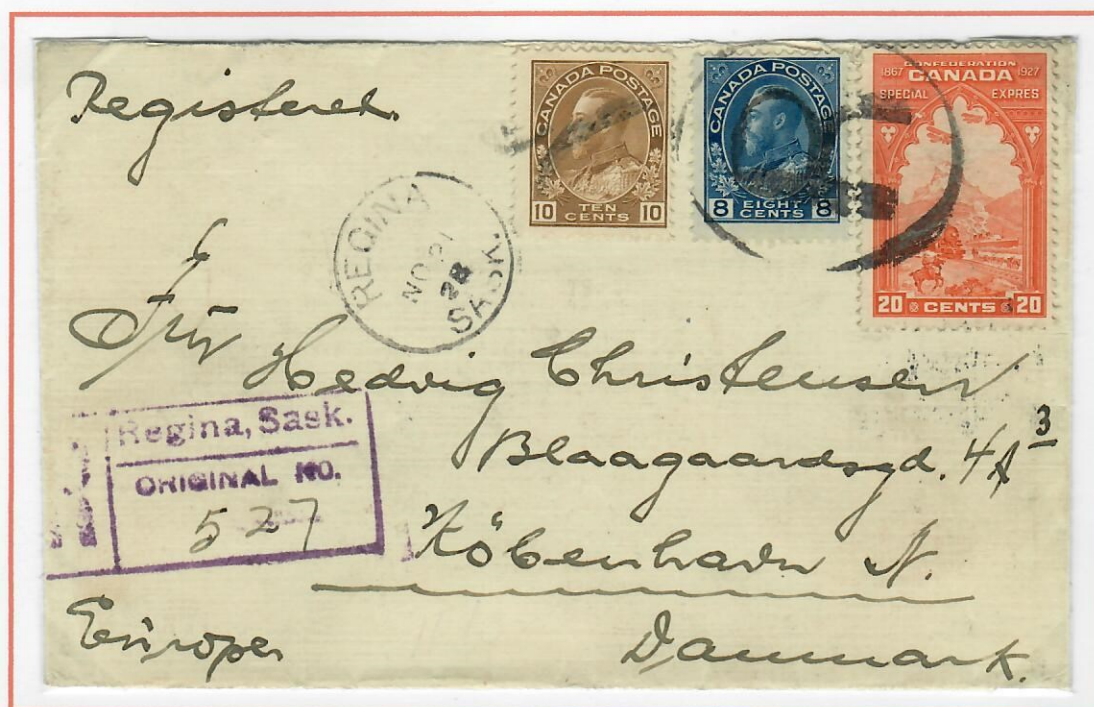 Registeret.
CANADA POSTAGE
10 TEN CENTS 10
CANADA POSTAGE
8 EIGHT CENTS 8
CONFEDERATION
1867 CANADA 1927
SPECIAL EXPRES
20 CENTS 20
REGINA
NO 21
28
SASK.
Frü Hedvig Christensen
Blaagaardsgd. 4A 3
Köbenhavn N.
Danmark.
Regina, Sask.
ORIGINAL NO.
527
Europe